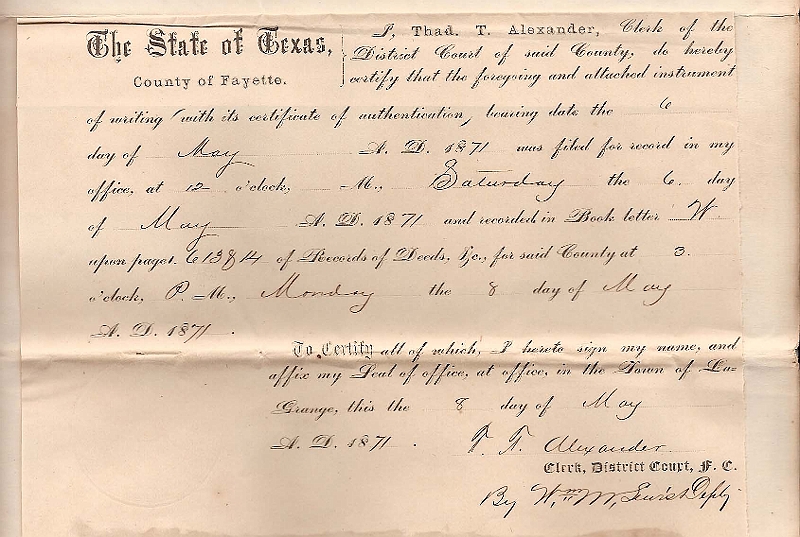 The State of Texas,
County of Fayette.
I, Thad. T. Alexander, Clerk of the
District Court of said County, do hereby
certify that the foregoing and attached instrument
of writing with its certificate of authentication, bearing date the 6
day of May A. D. 1871 was filed for record in my
office, at 12 o'clock, M., Saturday the 6. day
of May A. D. 1871 and recorded in Book letter W.
upon pages. 613 & 14 of Records of Deeds, &c., for said County at 3.
o'clock, P. M., Monday the 8 day of May
A. D. 1871.
To Certify all of which, I hereto sign my name, and
affix my Seal of office, at office, in the Town of La-
Grange, this the 8 day of May
A. D. 1871.
T. T. Alexander
Clerk, District Court, F. C.
By Wm. M. Lewis Depty